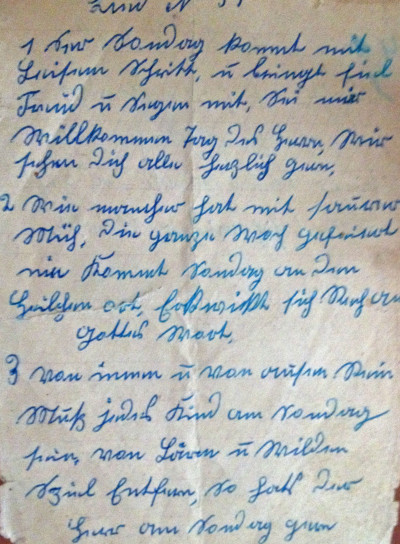 Lied N
1 Der Sondag kommt mit
Leisem Schritt, u bringt fiel
Freud u Segen mit, Sei mir
Willkommen Tag des Herrn, Wir
sehen Dich alle herzlich gern,
2 Wie mancher hat mit saurer
Müh, Die ganze Woch gefeiert
nie Kommt Sondag an dem
Heilgen ort, Erkwikt sich an
Gottes Wort,
3 Von innen u von ausen Rein
Muß jedes Kind am Sondag
sein, von Lärm u Wilden
Spiel Entfern, So hats der
Herr am Sondag gern